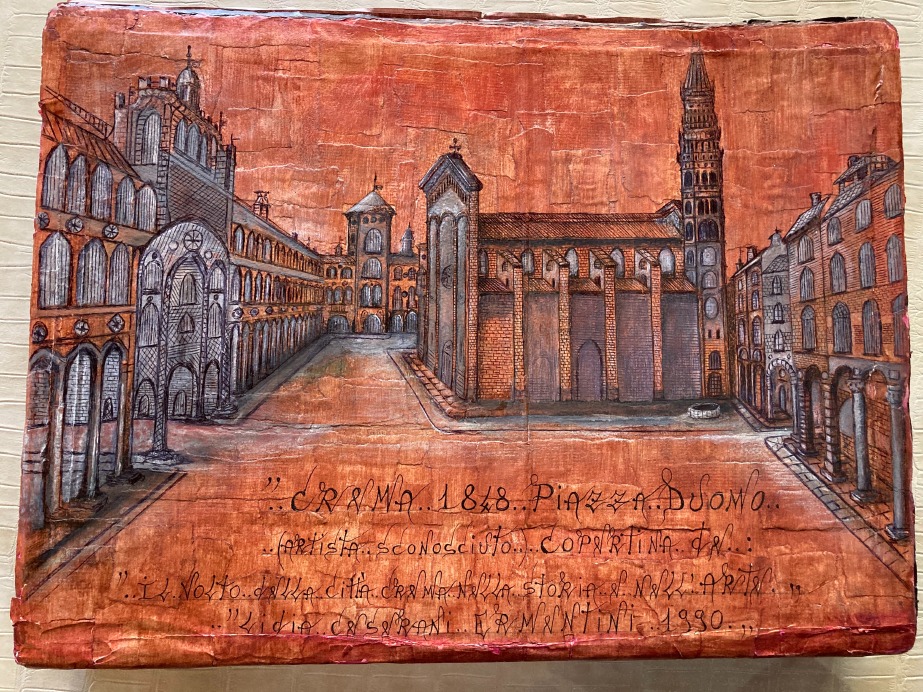 "..CREMA..1848..PIAZZA..DUOMO..
..(ARTISTA..SCONOSCIUTO....COPERTINA..DE..:
"..IL..VOLTO..DELLA..CITTA..CREMA..NELLA..STORIA..E..NELL'ARTE..„
.."LIDIA..CESERANI..ERMENTINI..1990..„